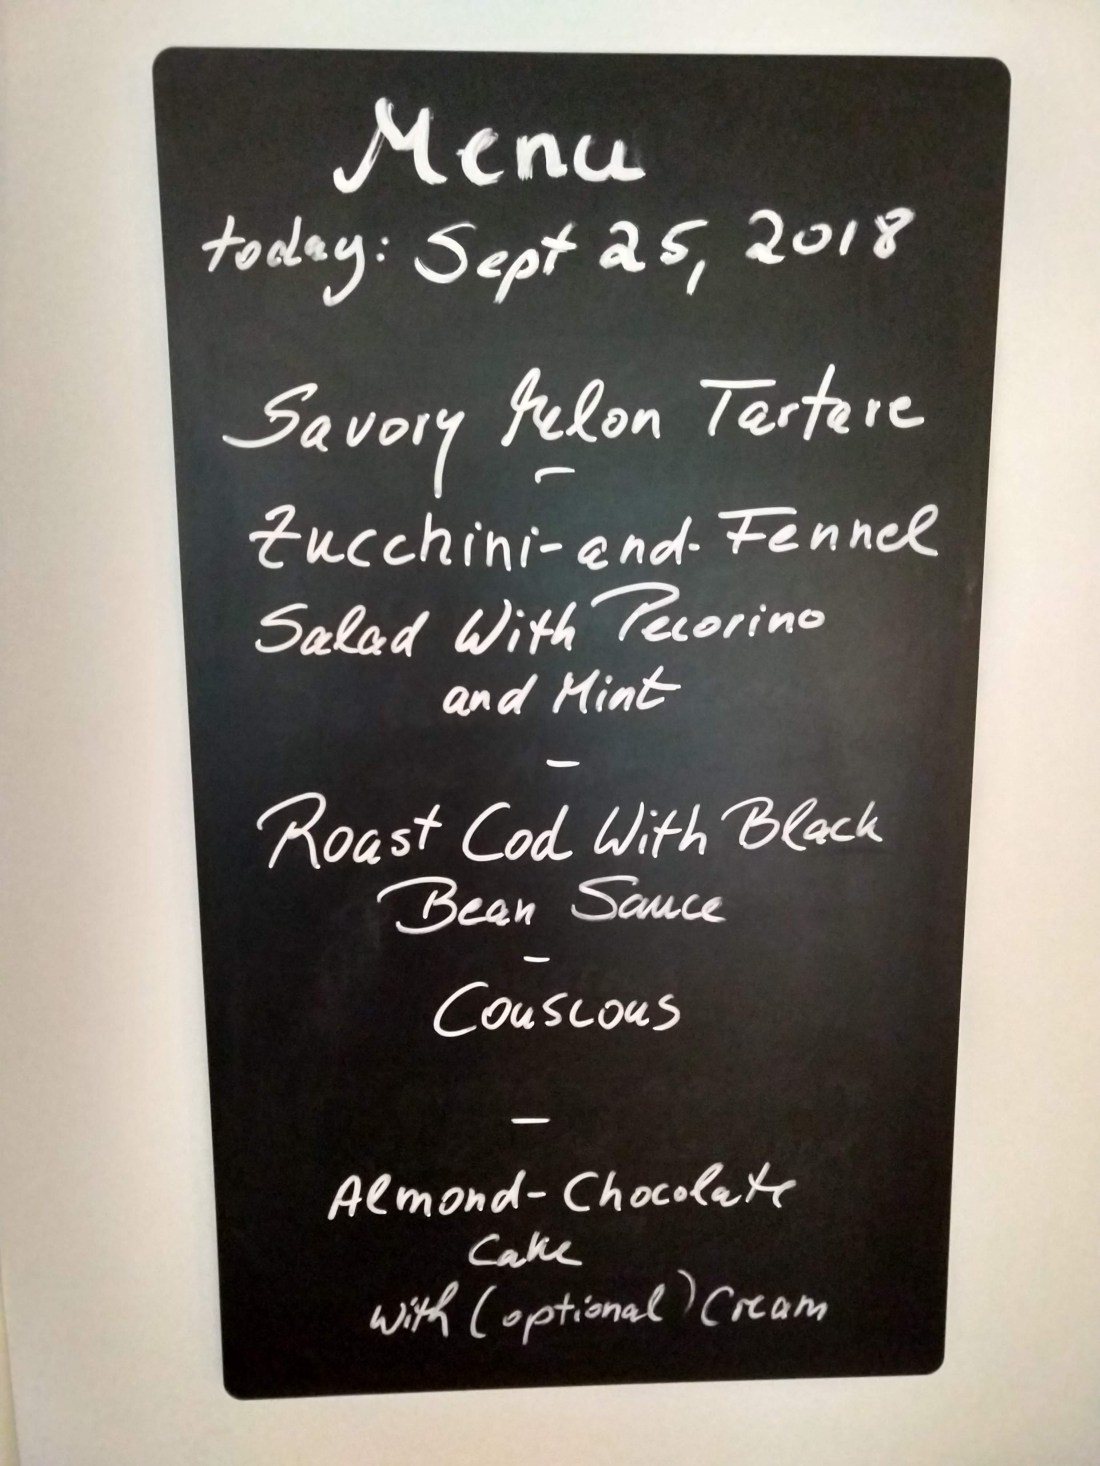 Menu
today: Sept 25, 2018
Savory Melon Tartare
-
Zucchini-and-Fennel
Salad With Pecorino
and Mint
-
Roast Cod With Black
Bean Sauce
-
Couscous
-
Almond-Chocolate
Cake
with (optional) Cream